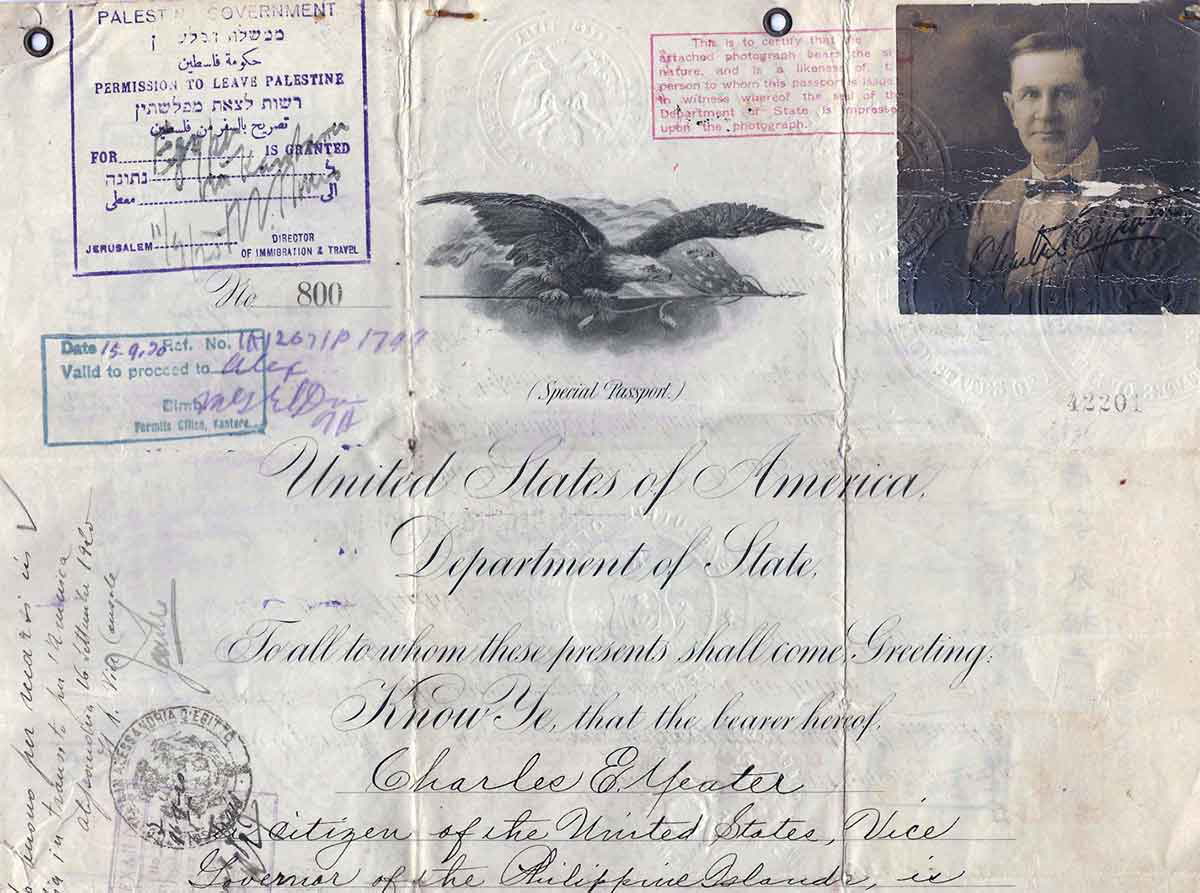 PALESTINE GOVERNMENT
ممשלת
حكومة فلسطين
PERMISSION TO LEAVE PALESTINE
רשות לצאת מפלשתין
تصريح بالسفر من فلسطين
FOR Egypt IS GRANTED
נתונה ל
معطى الى
JERUSALEM
DIRECTOR
OF IMMIGRATION & TRAVEL
No 800
Date 15.9.20 Ref. No.
Valid to proceed to Alex
Permits Office, Kantara.
This is to certify that the
attached photograph bears the
nature, and is a likeness of
person to whom this passport is
In witness whereof the seal of the
Department of State is impressed
upon the photograph.
(Special Passport.)
42201
United States of America,
Department of State,
To all to whom these presents shall come, Greeting:
Know Ye, that the bearer hereof,
Charles E. Yeater
a citizen of the United States, Vice
Governor of the Philippine Islands, is
in transito per
16 settembre 1920
ALESSANDRIA D'EGITTO